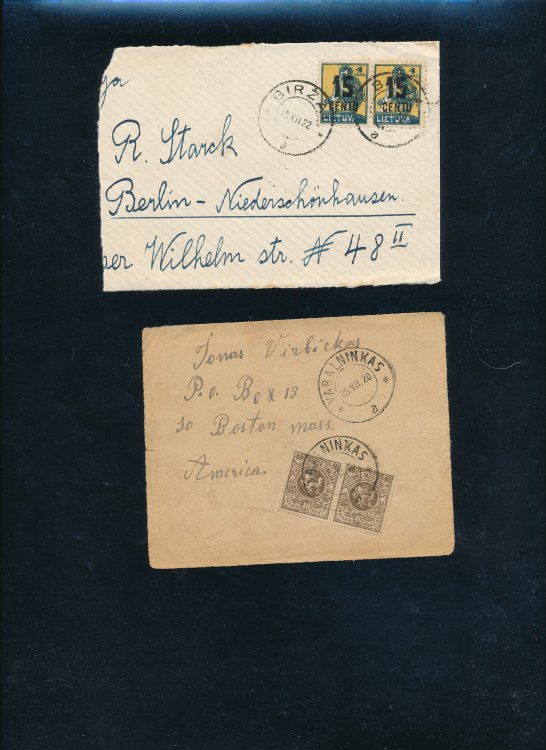 R. Starck
Berlin - Niederschönhausen.
Wilhelm str. № 48 II
15
CENTŲ
LIETUVA
15
CENTŲ
LIETUVA
BIRŽ
XII 22
a
a
Jonas Virbickas
P.o. Box 13
So Boston mass.
America.
VABALNINKAS
VII 20
a
NINKAS
40
40